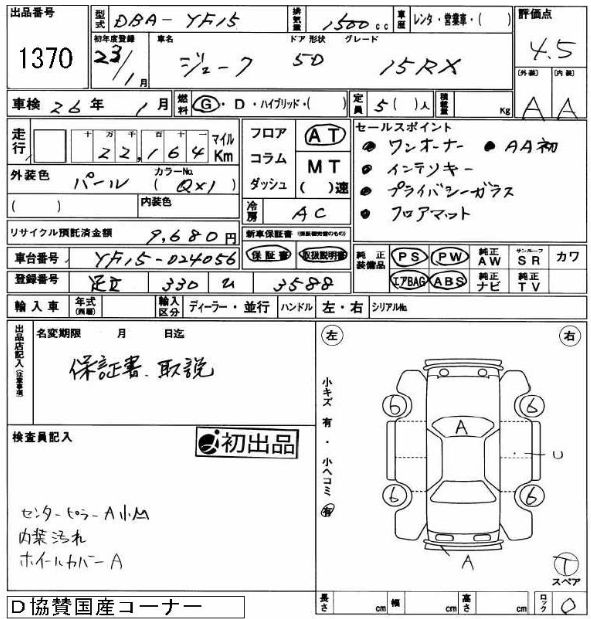 出品番号 1370
型式 DBA-YF15 排気量 1500cc 車歴 レンタ・営業車・( )
評価点 4.5
初年度登録 23/1月 車名 ジューク ドア形状 5D グレード 15RX
外装 A 内装 A
車検 26年 1月 燃料 G・D・ハイブリッド・( ) 定員 5( )人 積載量 Kg
走行 十 万 千 百 十 一 22,164 マイル Km
フロア コラム ダッシュ AT MT ( )速
セールスポイント
・ワンオーナー ・AA初
・インテリキー
・プライバシーガラス
・フロアマット
外装色 パール カラーNo. (QX1)
( ) 内装色
冷房 AC
リサイクル預託済金額 9,680円
新車保証書(保証継続書のもの)
保証書 取扱説明書
車台番号 YF15-024056
登録番号 足立 330 は 3588
純正装備品 PS PW 純正AW サンルーフ SR カワ
エアBAG ABS 純正ナビ 純正TV
輸入車 年式(西暦) 輸入区分 ディーラー・並行 ハンドル 左・右 シリアルNo.
出品店記入(注意事項)
名変期限 月 日迄
保証書、取説
検査員記入
初出品
センターピラーA小凹
内装汚れ
ホイールカバーA
左 右
小キズ 有・小ヘコミ 有
6 6
A
U
6 6
A
T
スペア
D協賛国産コーナー
長さ cm 幅 cm 高さ cm ロック 0